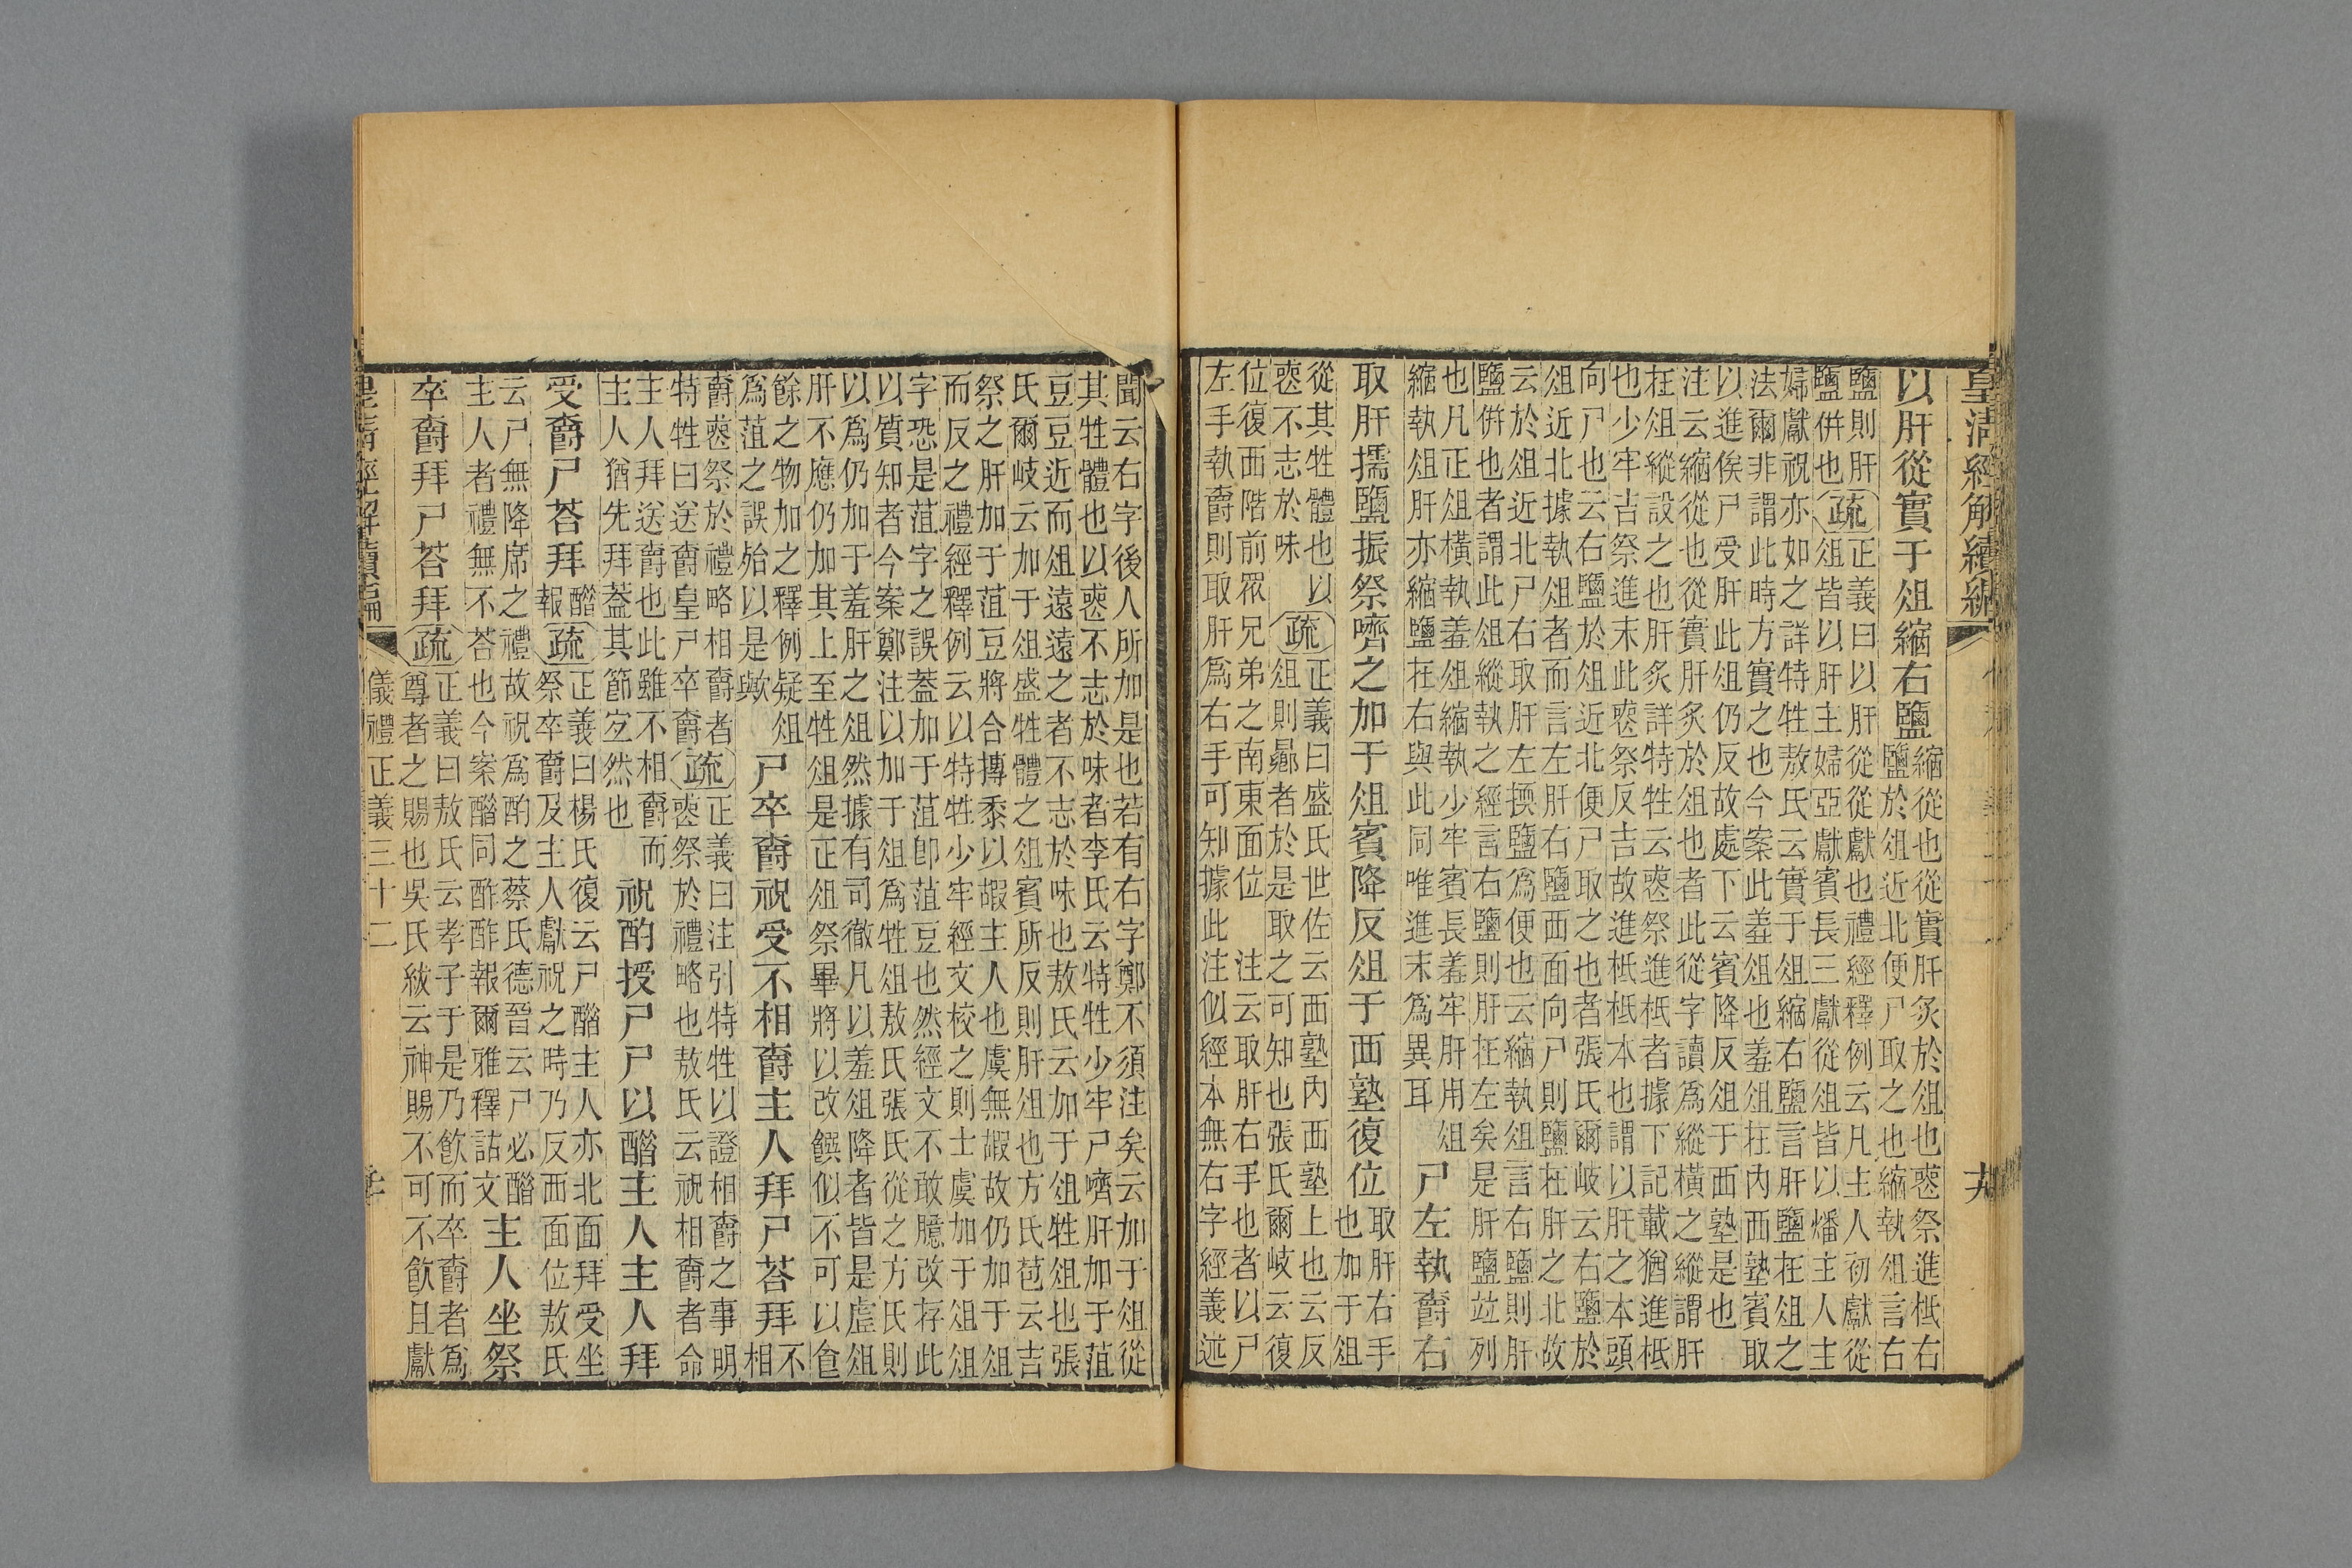 皇清經解續編
以肝從實于俎縮右鹽
縮從也從實肝炙於俎也喪祭進柢右
鹽於俎近北便尸取之也縮執俎言右
鹽則肝
鹽併也
疏
正義曰以肝從從獻也禮經釋例云凡主人初獻從
俎皆以肝主婦亞獻賓長三獻從俎皆以燔主人主
婦獻祝亦如之詳特牲敖氏云實于俎縮右鹽言肝鹽在俎之
法爾非謂此時方實之也今案此羞俎也羞俎在內西塾賓取
以進俟尸受肝此俎仍反故處下云賓降反俎于西塾是也
注云縮從也從實肝炙於俎也者此從字讀爲縱橫之縱謂肝
在俎縱設之也肝炙詳特牲云喪祭進柢者據下記載猶進柢
也少牢吉祭進末此喪祭反吉故進柢柢本也謂以肝之本頭
向尸也云右鹽於俎近北便尸取之也者張氏爾岐云右鹽於
俎近北據執俎者而言左肝右鹽西面向尸則鹽在肝之北故
云於俎近北尸右取肝左擩鹽爲便也云縮執俎言右鹽則肝
鹽併也者謂此俎縱執之經言右鹽則肝在左矣是肝鹽竝列
也凡正俎橫執羞俎縮執少牢賓長羞牢肝用俎
縮執俎肝亦縮鹽在右與此同唯進末爲異耳
尸左執爵右
取肝擩鹽振祭嚌之加于俎賓降反俎于西塾復位
取肝右手
也加于俎
從其牲體也以
喪不志於味
疏
正義曰盛氏世佐云西塾內西塾上也云反
俎則曏者於是取之可知也張氏爾岐云復
位復西階前眾兄弟之南東面位 注云取肝右手也者以尸
左手執爵則取肝爲右手可知據此注似經本無右字經義述
聞云右字後人所加是也若有右字鄭不須注矣云加于俎從
其牲體也以喪不志於味者李氏云特牲少牢尸嚌肝加于菹
豆豆近而俎遠遠之者不志於味也敖氏云加于俎牲俎也張
氏爾岐云加于俎盛牲體之俎賓所反則肝俎也方氏苞云吉
祭之肝加于菹豆將合摶黍以嘏主人也虞無嘏故仍加于俎
而反之禮經釋例云以特牲少牢經文校之則士虞加于俎俎
字恐是菹字之誤蓋加于菹卽菹豆也然經文不敢臆改存此
以質知者今案鄭注以加于俎爲牲俎敖氏張氏從之方氏則
以爲仍加于羞肝之俎然據有司徹凡以羞俎降者皆是虛俎
肝不應仍加其上至牲俎是正俎祭畢將以改饌似不可以食
餘之物加之釋例疑俎
爲菹之誤殆以是歟
尸卒爵祝受不相爵主人拜尸荅拜
不
相
爵喪祭於禮略相爵者
特牲曰送爵皇尸卒爵
疏
正義曰注引特牲以證相爵之事明
喪祭於禮略也敖氏云祝相爵者命
主人拜送爵也此雖不相爵而
主人猶先拜蓋其節宐然也
祝酌授尸尸以醋主人主人拜
受爵尸荅拜
醋
報
疏
正義曰楊氏復云尸醋主人亦北面拜受坐
祭卒爵及主人獻祝之時乃反西面位敖氏
云尸無降席之禮故祝爲酌之蔡氏德晉云尸必醋
主人者禮無不荅也今案醋同酢酢報爾雅釋詁文
主人坐祭
卒爵拜尸荅拜
疏
正義曰敖氏云孝子于是乃飮而卒爵者爲
尊者之賜也吳氏紱云神賜不可不飮且獻
皇清經解續編
儀禮正義三十二